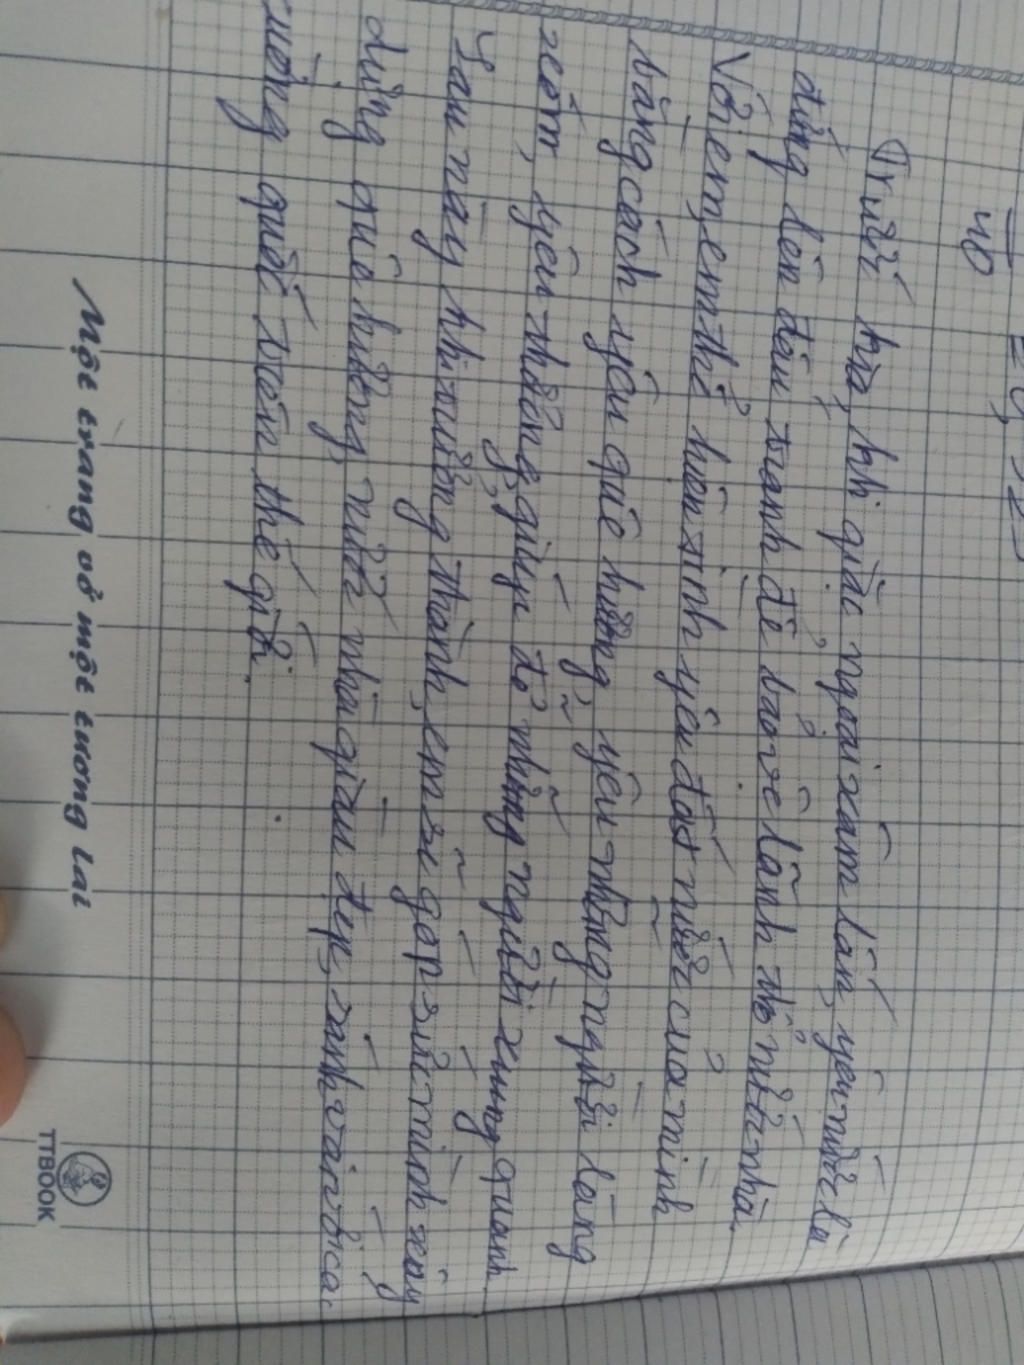 Trước kia, khi giặc ngoại xâm lấn, yêu nước là
đứng lên đấu tranh để bảo vệ lãnh thổ nước nhà.
Với em, em thể hiện tình yêu đất nước của mình
bằng cách yêu quê hương, yêu những người làng
xóm, yêu thương, giúp đỡ những người xung quanh
Sau này khi trưởng thành, em sẽ góp sức mình xây
dựng quê hương, nước nhà giàu đẹp, sánh vai với các
cường quốc trên thế giới.
Một trang vở một tương lai
TTBOOK